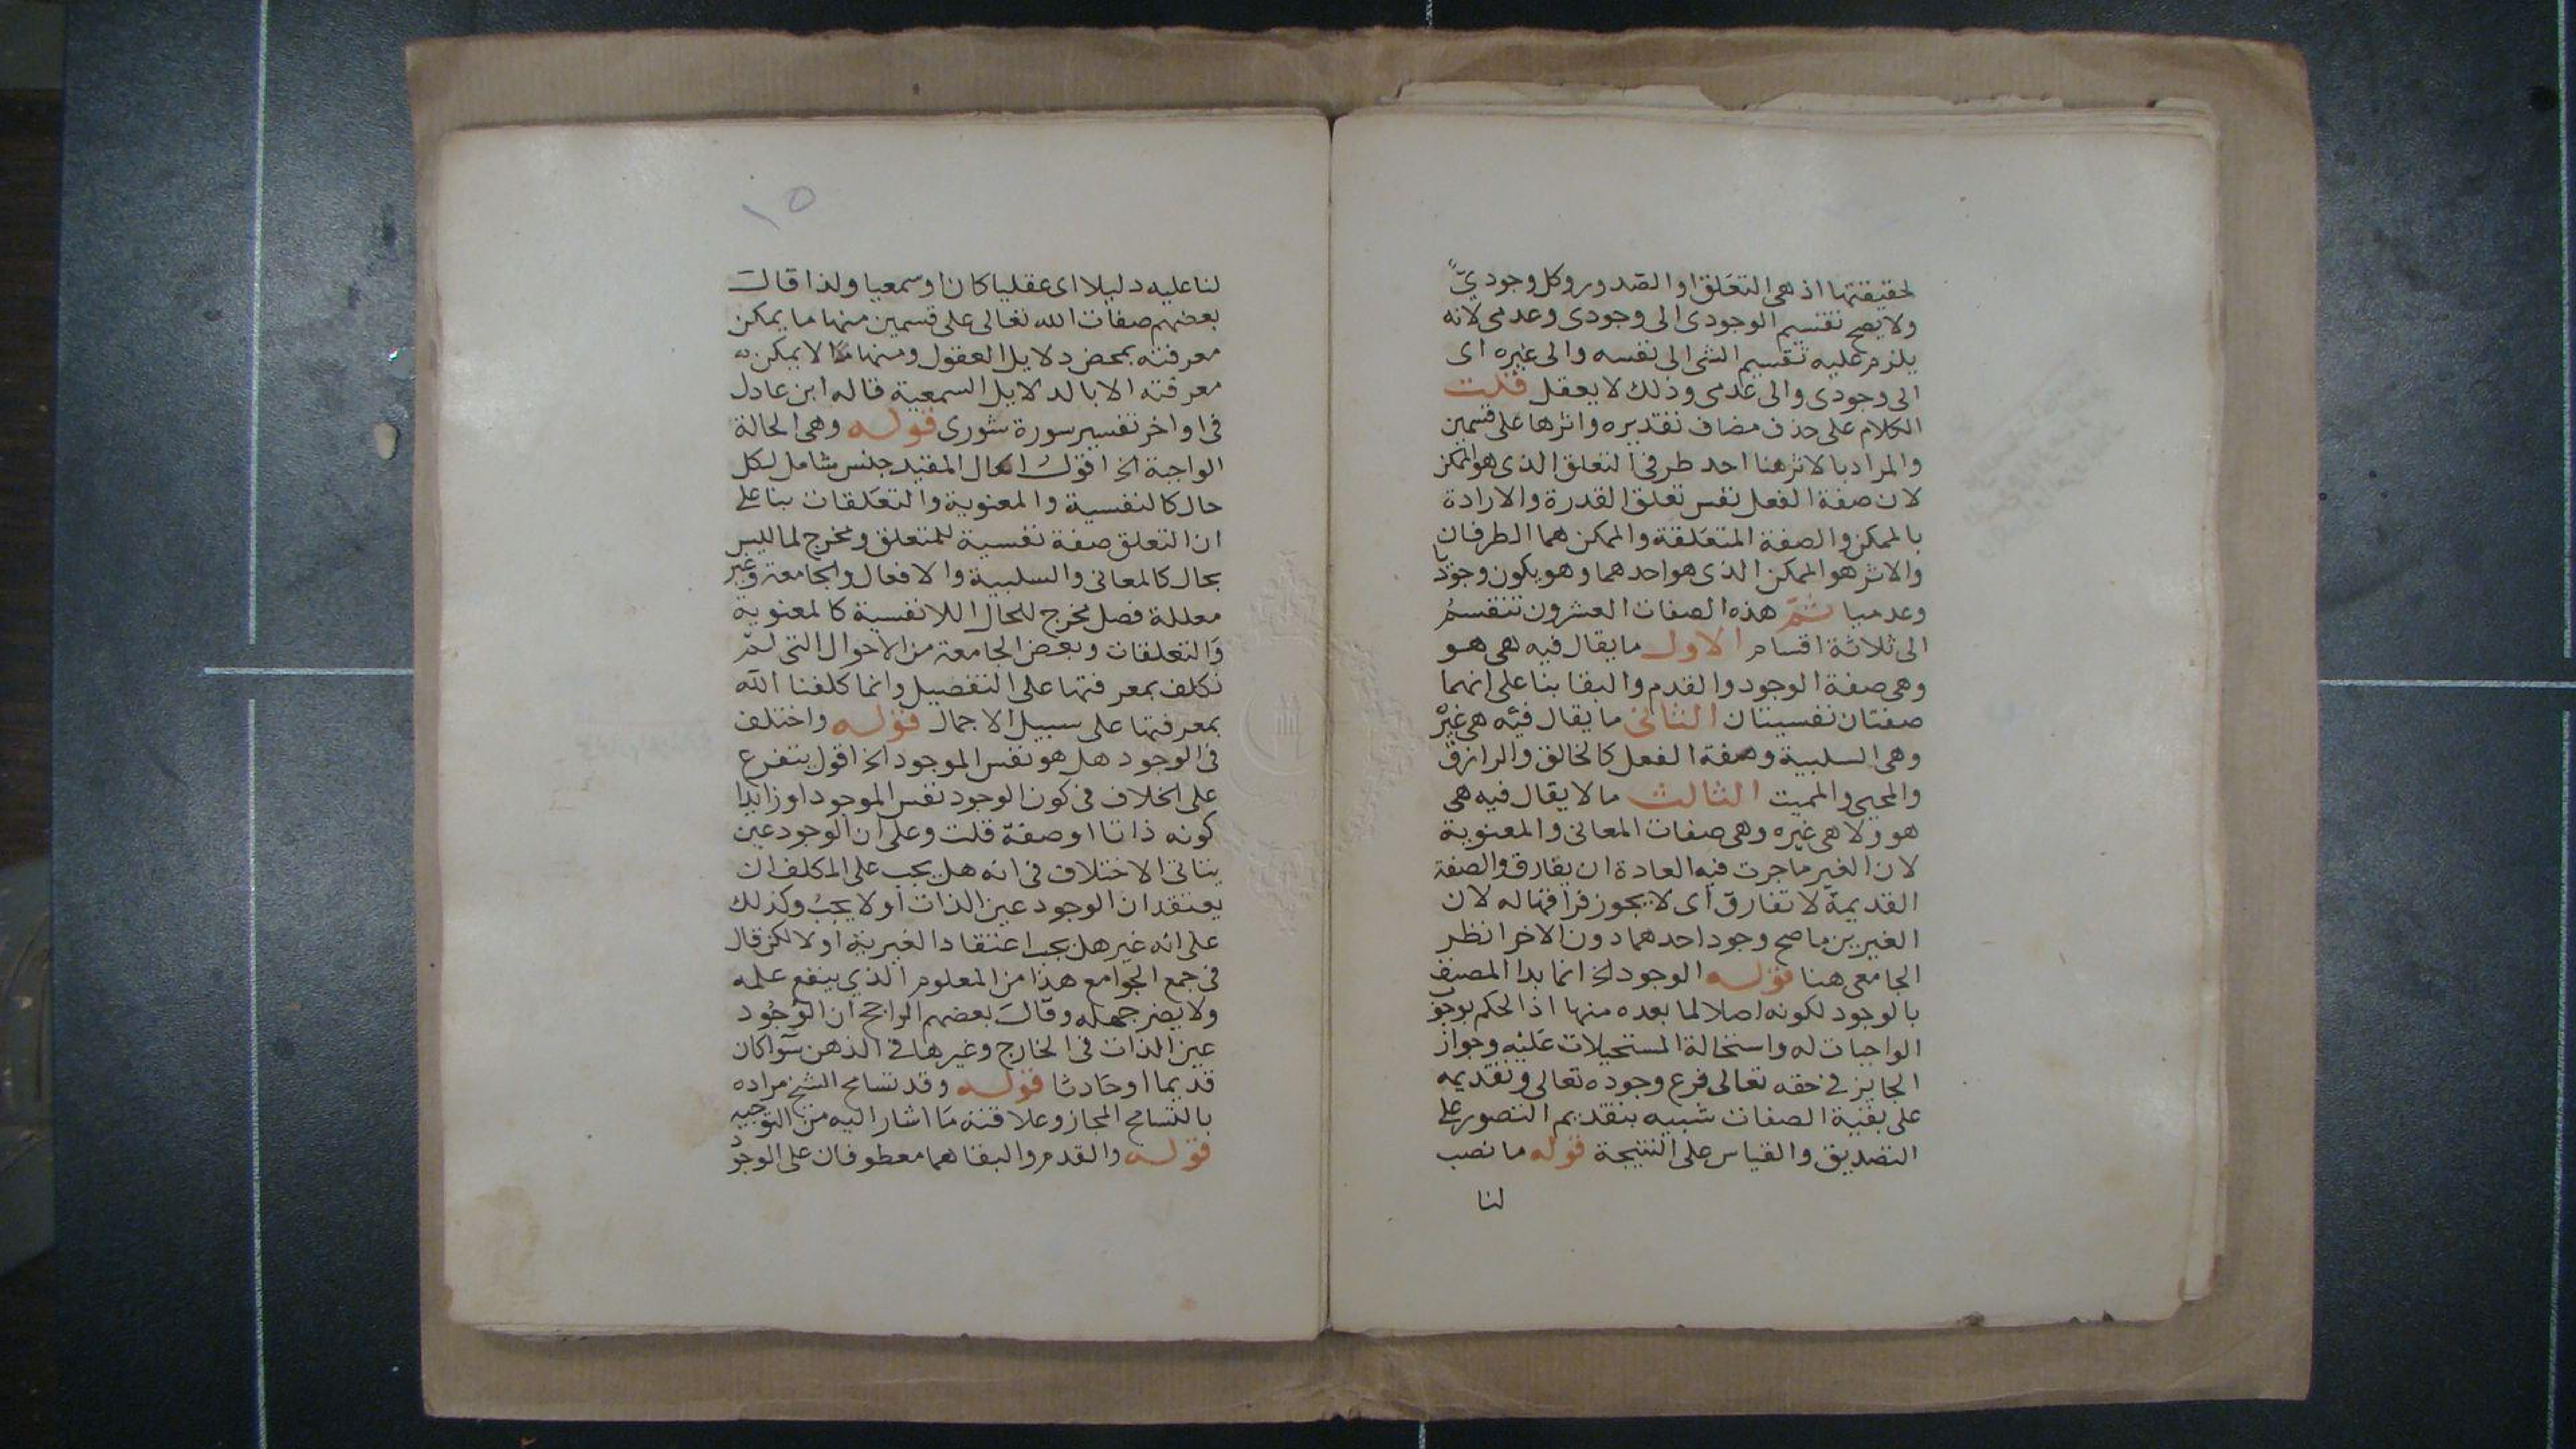 لحقيقتها اذ هى التعلق او الصدور وكل وجودىّ
ولا يصح تقسيم الوجودى الى وجودى وعدمى لانه
يلزم عليه تقسيم الشى الى نفسه والى غيره اى
الى وجودى والى عدمى وذلك لا يعقل قلت
الكلام على حذف مضاف تقديره واثرها على قسمين
والمراد بالاثر هنا احد طرفى التعلق الذى هو الممكن
لان صفة الفعل نفس تعلق القدرة والارادة
بالممكن والصفة المتعلقة والممكن هما الطرفان
والاثر هو الممكن الذى هو احدهما وهو يكون وجوديا
وعدميا ثمّ هذه الصفات العشرون تنقسم
الى ثلاثة اقسام الاول ما يقال فيه هى هو
وهى صفة الوجود والقدم والبقا بنا على انهما
صفتان نفسيتان الثانى ما يقال فيه هى غيره
وهى السلبية وصفة الفعل كالخالق والرازق
والمحيى والمميت الثالث ما لا يقال فيه هى
هو ولا هى غيره وهى صفات المعانى والمعنوية
لان الغير ما جرت فيه العادة ان يفارق والصفة
القديمة لا تفارق اى لا يجوز فراقها له لان
الغيرين ما صح وجود احدهما دون الاخر انظر
الجامعى هنا قوله الوجود الخ انما بدا المصنف
بالوجود لكونه اصلا لما بعده منها اذ الحكم بوجو
الواجبات له واستحالة المستحيلات عليه وجواز
الجايز فى حقه تعالى فرع وجوده تعالى وتقديمه
على بقية الصفات شبيه بتقديم التصور على
التصديق والقياس على النتيجة قوله ما نصب
لنا
١٥
لنا عليه دليلا اى عقليا كان او سمعيا ولذا قالت
بعضهم صفات الله تعالى على قسمين منها ما يمكن
معرفته بمحض دلايل العقول ومنها ما لا يمكن
معرفته الا بالدلايل السمعية قاله ابن عادل
فى اواخر تفسير سورة شورى قوله وهى الحالة
الواجبة الخ اقول الحال المقيد جنس شامل لكل
حال كالنفسية والمعنوية والتعلقات بنا على
ان التعلق صفة نفسية للمتعلق ومخرج لما ليس
بحال كالمعانى والسلبية والافعال والجامعة وغير
معللة فصل مخرج للحال اللانفسية كالمعنوية
والتعلقات وبعض الجامعة من الاحوال التى لم
نكلف بمعرفتها على التفصيل وانما كلفنا الله
بمعرفتها على سبيل الاجمال قوله واختلف
فى الوجود هل هو نفس الموجود الخ اقول يتفرع
على الخلاف فى كون الوجود نفس الموجود او زايدا
كونه ذاتا او صفة قلت وعلى ان الوجود عين
يتاتى الاختلاف فى انه هل يجب على المكلف ان
يعتقد ان الوجود عين الذات او لا يجب وكذلك
على انه غير هل يجب اعتقاد الغيرية او لا لكن قال
فى جمع الجوامع هذا من المعلوم الذى ينفع علمه
ولا يضر جهله وقالت بعضهم الراجح ان الوجود
عين الذات فى الخارج وغيرها فى الذهن سوا كان
قديما او حادثا قوله وقد تسامح الشيخ مراده
بالتسامح المجاز وعلاقته ما اشار اليه من التوجيه
قوله والقدم والبقا هما معطوفان على الوجود